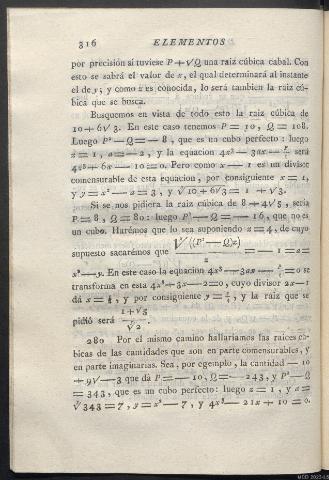 316 ELEMENTOS
por precisión si tuviese P + √Q una raiz cúbica cabal. Con
esto se sabrá el valor de x, el qual determinará al instante
el de y; y como z es conocida, lo será tambien la raiz cú-
bica que se busca.
Busquemos en vista de todo esto la raiz cúbica de
10 + 6√3. En este caso tenemos P = 10, Q = 108.
Luego P² — Q = — 8, que es un cubo perfecto: luego
z = 1, a = — 2, y la equacion 4x³ — 3ax — P/z será
4x³ + 6x — 10 = 0. Pero como x — 1 es un divisor
comensurable de esta equacion, por consiguiente x = 1,
y y = x² — a = 3, y √10 + 6√3 = 1 + √3.
Si se nos pidiera la raiz cúbica de 8 + 4√5, sería
P = 8, Q = 80: luego P² — Q = — 16, que no es
un cubo. Harémos que lo sea suponiendo z = 4, de cuyo
supuesto sacarémos que √((P² — Q)z) / z = — 1 = a =
x² — y. En este caso la equacion 4x³ — 3ax — P/z = 0 se
transforma en esta 4x³ + 3x — 2 = 0, cuyo divisor 2x — 1
dá x = 1/2, y por consiguiente y = 5/4, y la raiz que se
pidió será 1 + √5 / √2.
280 Por el mismo camino hallaríamos las raices cú-
bicas de las cantidades que son en parte comensurables, y
en parte imaginarias. Sea, por egemplo, la cantidad — 10
+ 9√ — 3 que dá P = — 10, Q = — 243, y P² — Q
= 343, que es un cubo perfecto: luego z = 1, y a =
√343 = 7, y = x² — 7, y 4x³ — 21x + 10 = 0.